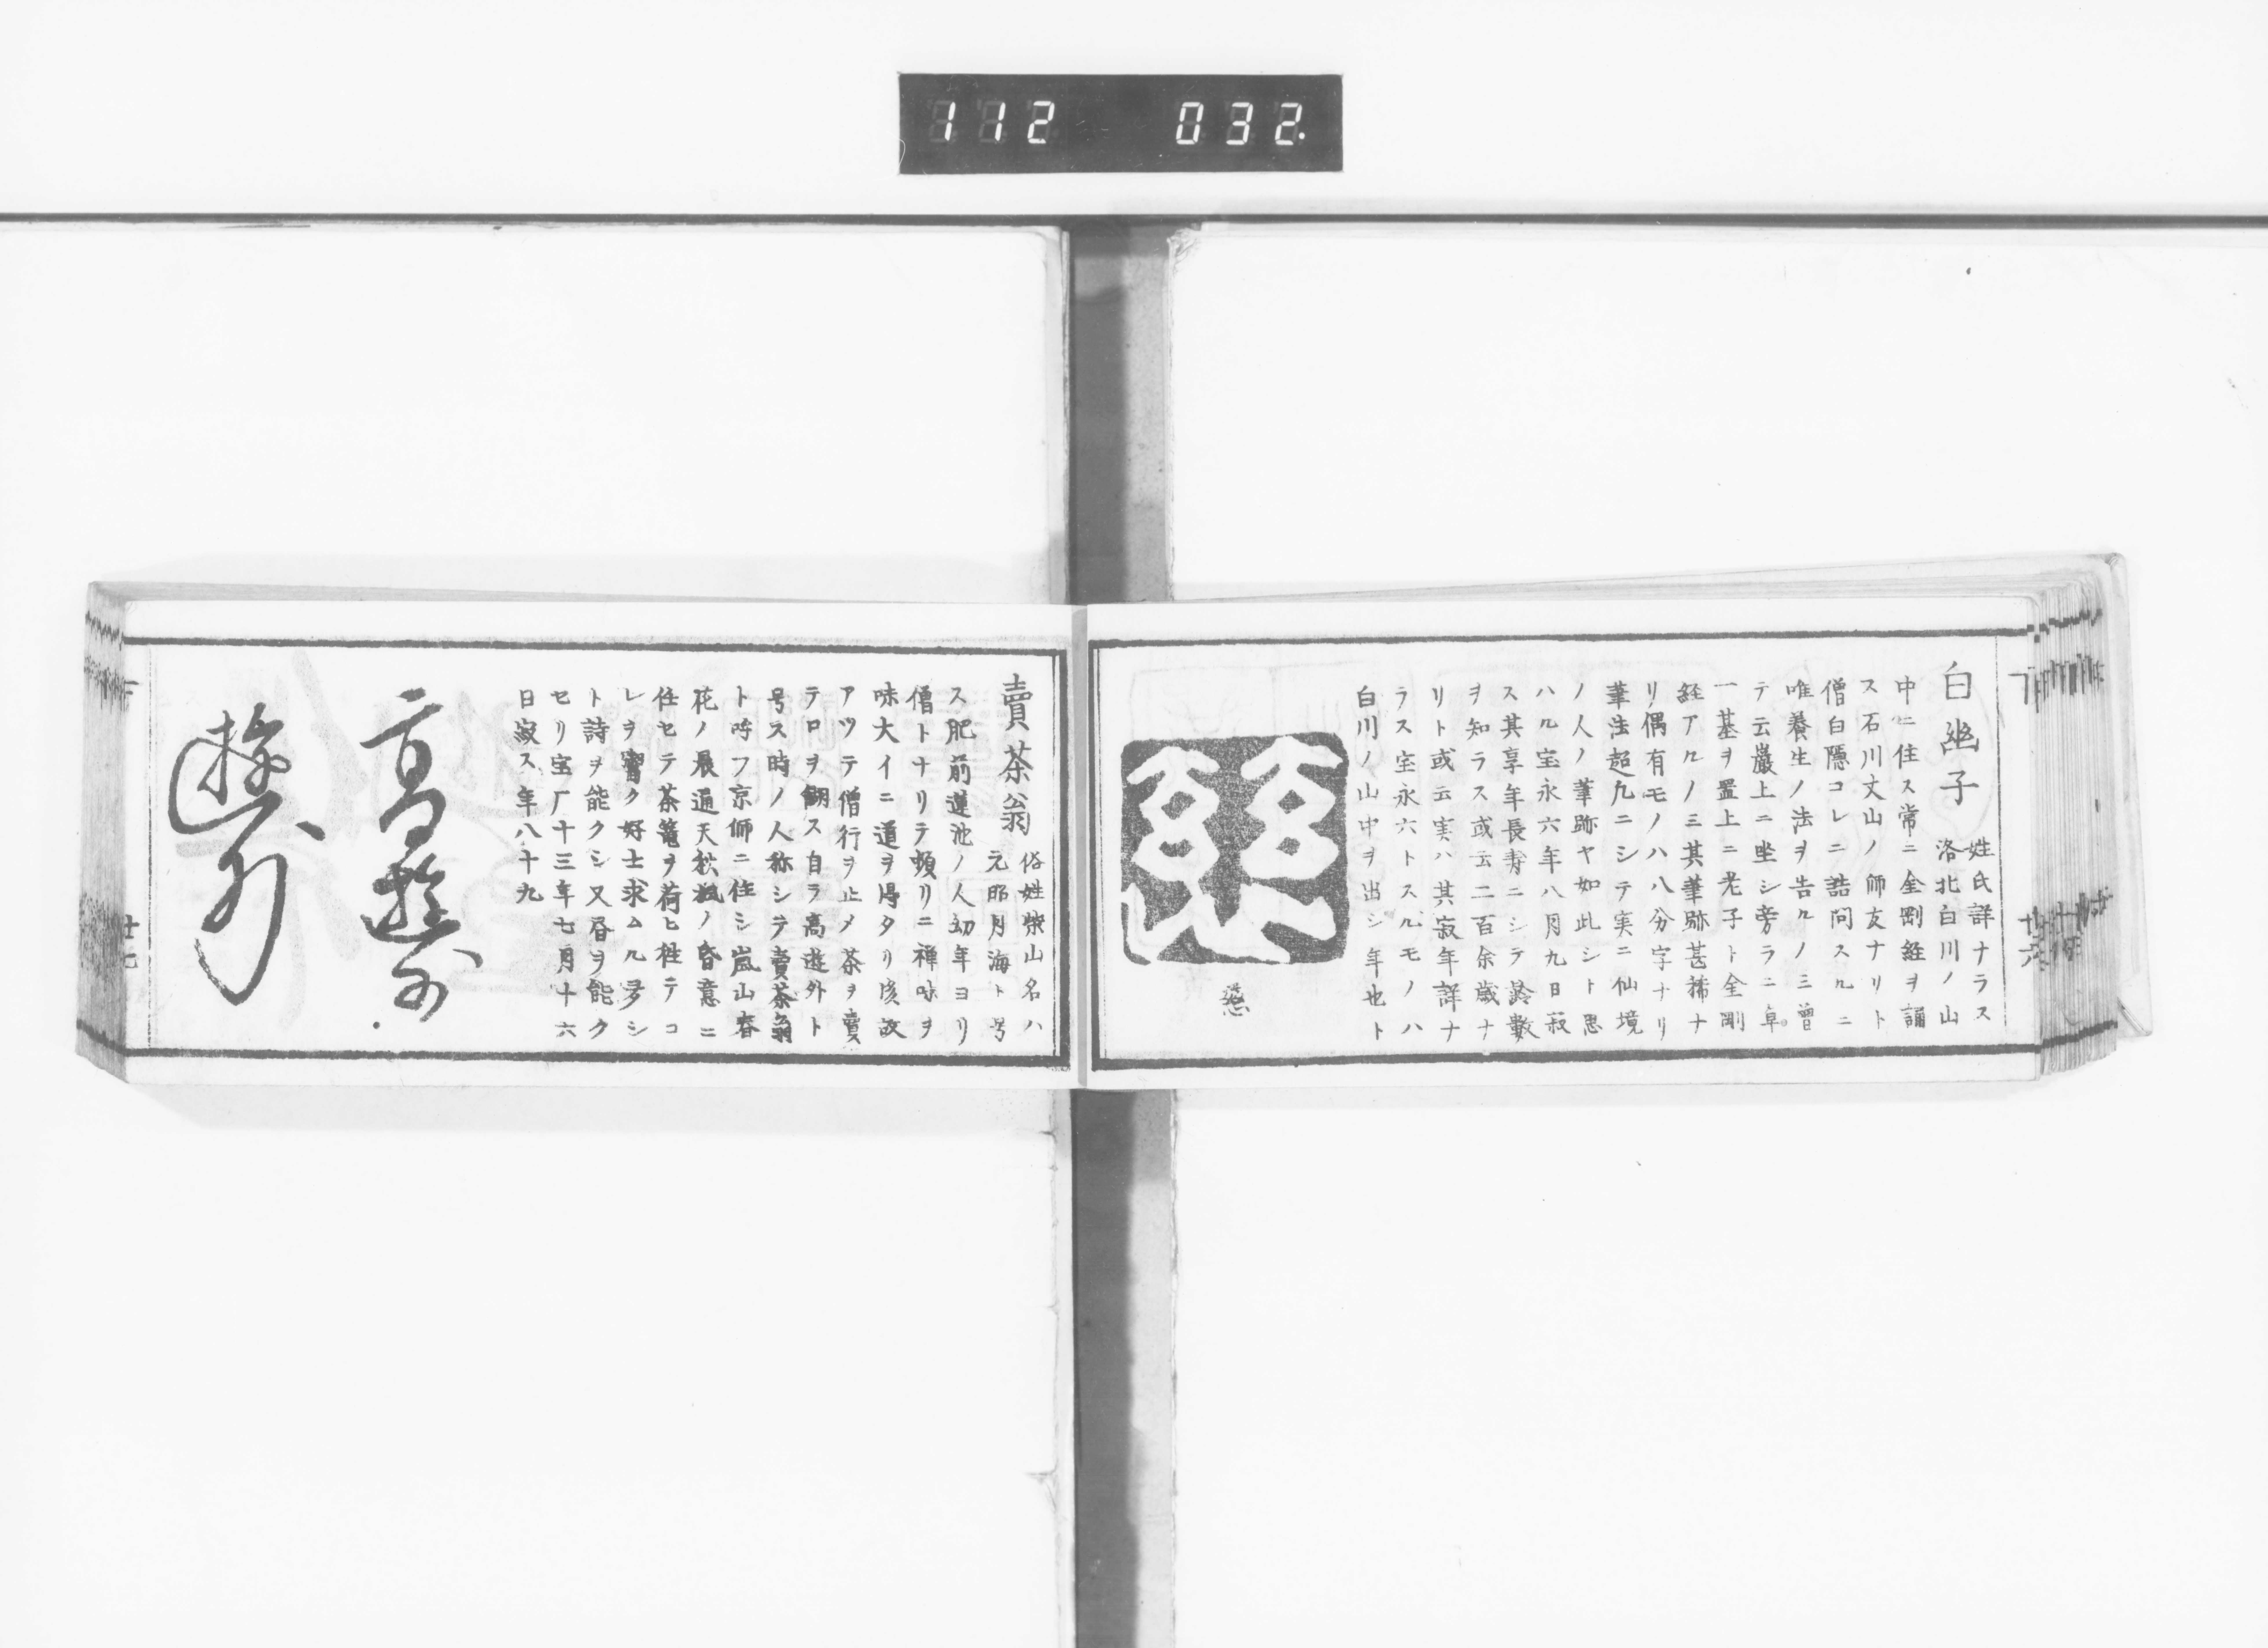 112 032.
白幽子
姓氏詳ナラス
洛北白川ノ山
中ニ住ス常ニ金剛経ヲ誦
ス石川丈山ノ師友ナリト
僧白隠コレニ詰問スルニ
唯養生ノ法ヲ告ルノミ曽
テ云巌上ニ坐シ旁ラニ卓
一基ヲ置上ニ老子ト金剛
経アルノミ其筆跡甚稀ナ
リ偶有モノハ八分字ナリ
筆法超凡ニシテ実ニ仙境
ノ人ノ筆跡ヤ如此シト思
ハル宝永六年八月九日寂
ス其享年長寿ニシテ齢数
ヲ知ラス或云二百余歳ナ
リト或云実ハ其寂年詳ナ
ラス宝永六トスルモノハ
白川ノ山中ヲ出シ年也ト
下
廿六
賣茶翁
俗姓柴山名ハ
元昭月海ト号
ス肥前蓮池ノ人幼年ヨリ
僧トナリテ頻リニ禅味ヲ
味大イニ道ヲ得タリ後故
アツテ僧行ヲ止メ茶ヲ賣
テ口ヲ餬ス自ラ高遊外ト
号ス時ノ人称シテ賣茶翁
ト呼フ京師ニ住シ嵐山春
花ノ晨通天秋楓ノ昏意ニ
任セテ茶籠ヲ荷ヒ往テコ
レヲ鬻ク好士求ムル多シ
ト詩ヲ能クシ又書ヲ能ク
セリ宝厂十三年七月十六
日寂ス年八十九
高遊外
遊外
下
廿七